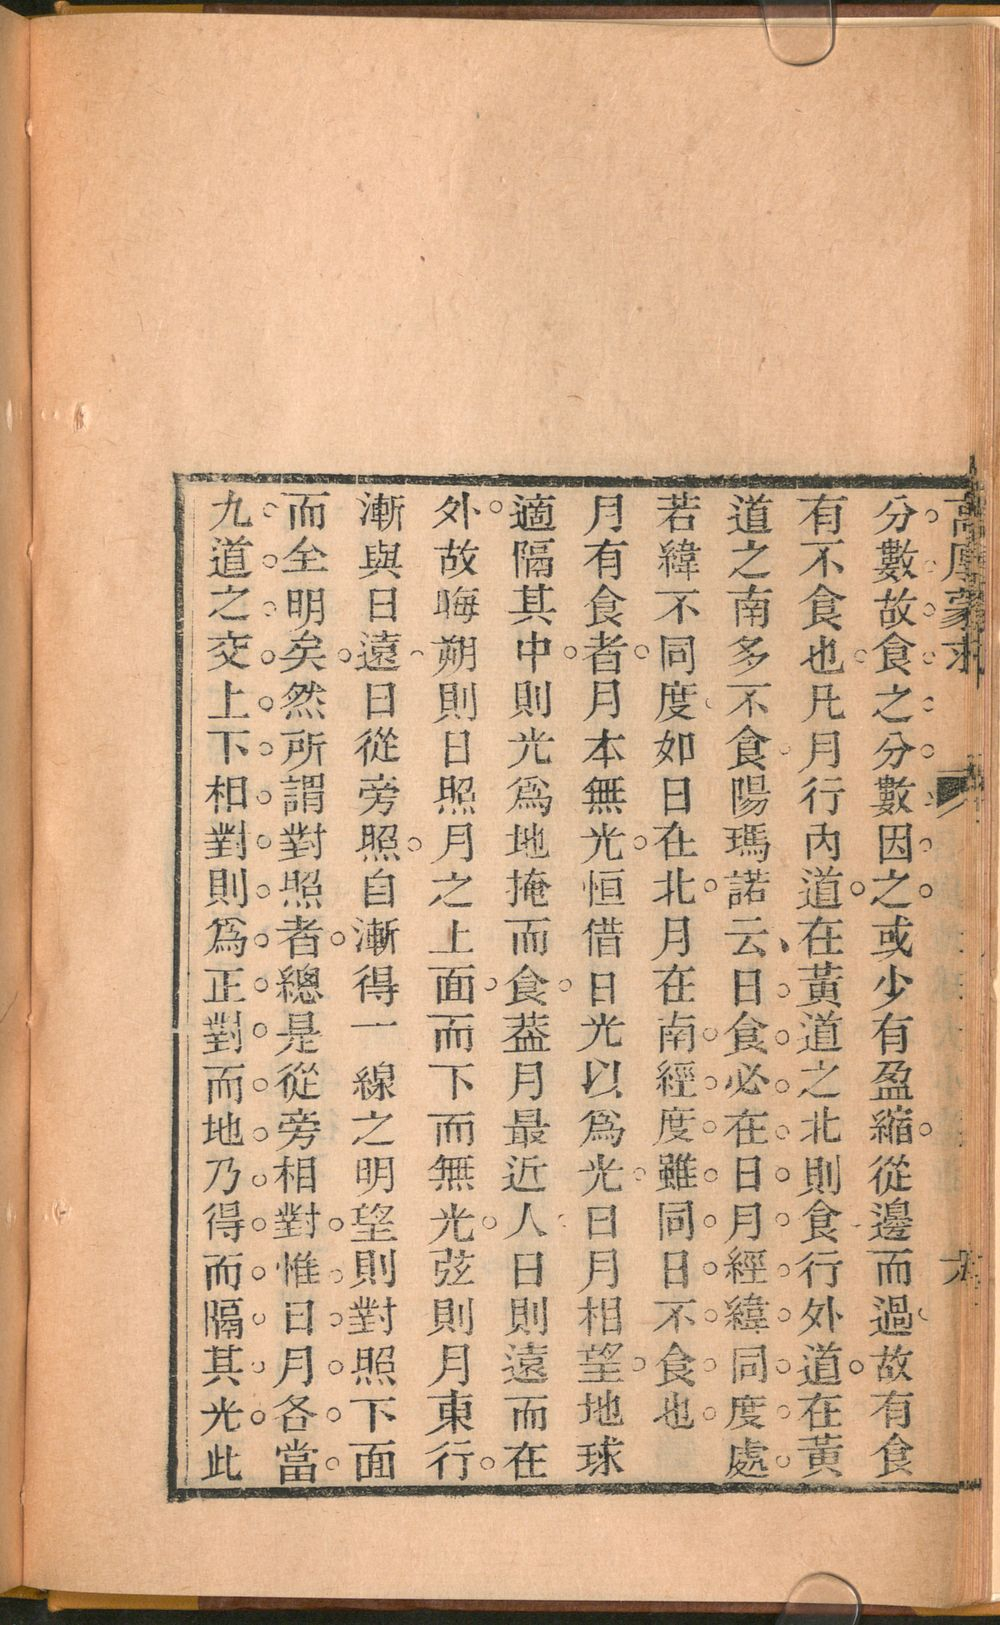 高厚蒙求
分數故食之分數因之或少有盈縮從邊而過故有食
有不食也凡月行內道在黃道之北則食行外道在黃
道之南多不食陽瑪諾云日食必在日月經緯同度處
若緯不同度如日在北月在南經度雖同日不食也
月有食者月本無光恒借日光以爲光日月相望地球
適隔其中則光爲地掩而食葢月最近人日則遠而在
外故晦朔則日照月之上面而下面無光弦則月東行
漸與日遠日從旁照自漸得一線之明望則對照下面
而全明矣然所謂對照者總是從旁相對惟日月各當
九道之交上下相對則爲正對而地乃得而隔其光此